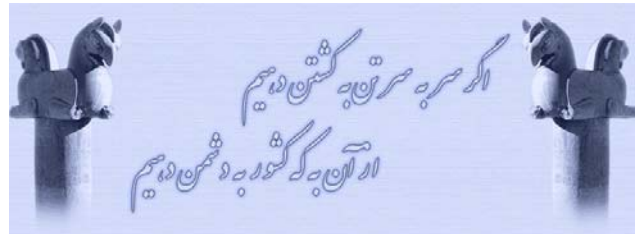 اگر سر به سر تن به کشتن دهیم
از آن به که کشور به دشمن دهیم